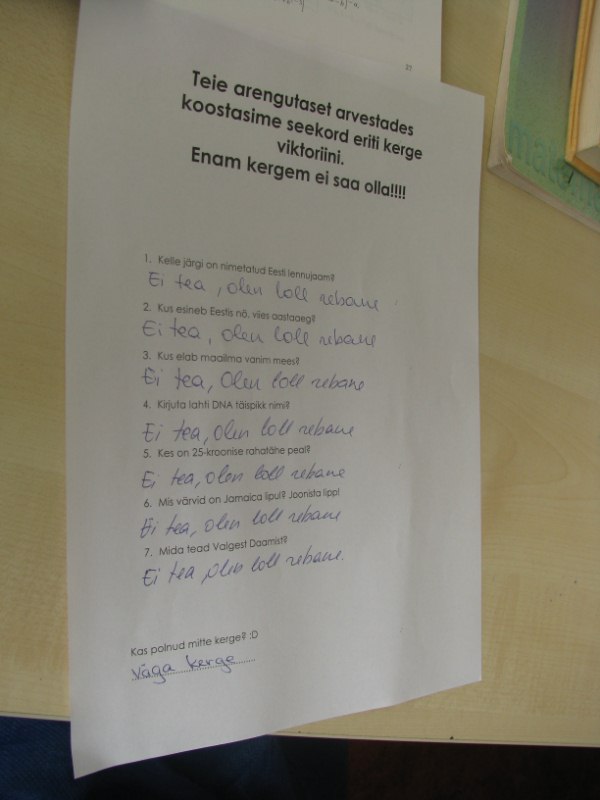 27
Teie arengutaset arvestades
koostasime seekord eriti kerge
viktoriini.
Enam kergem ei saa olla!!!!
1. Kelle järgi on nimetatud Eesti lennujaam?
Ei tea, olen loll rebane
2. Kus esineb Eestis nö. viies aastaaeg?
Ei tea, olen loll rebane
3. Kus elab maailma vanim mees?
Ei tea, Olen loll rebane
4. Kirjuta lahti DNA täispikk nimi?
Ei tea, olen loll rebane
5. Kes on 25-kroonise rahatähe peal?
Ei tea, olen loll rebane
6. Mis värvid on Jamaica lipul? Joonista lipp!
Ei tea, olen loll rebane
7. Mida tead Valgest Daamist?
Ei tea, olen loll rebane.
Kas polnud mitte kerge? :D
Väga kerge